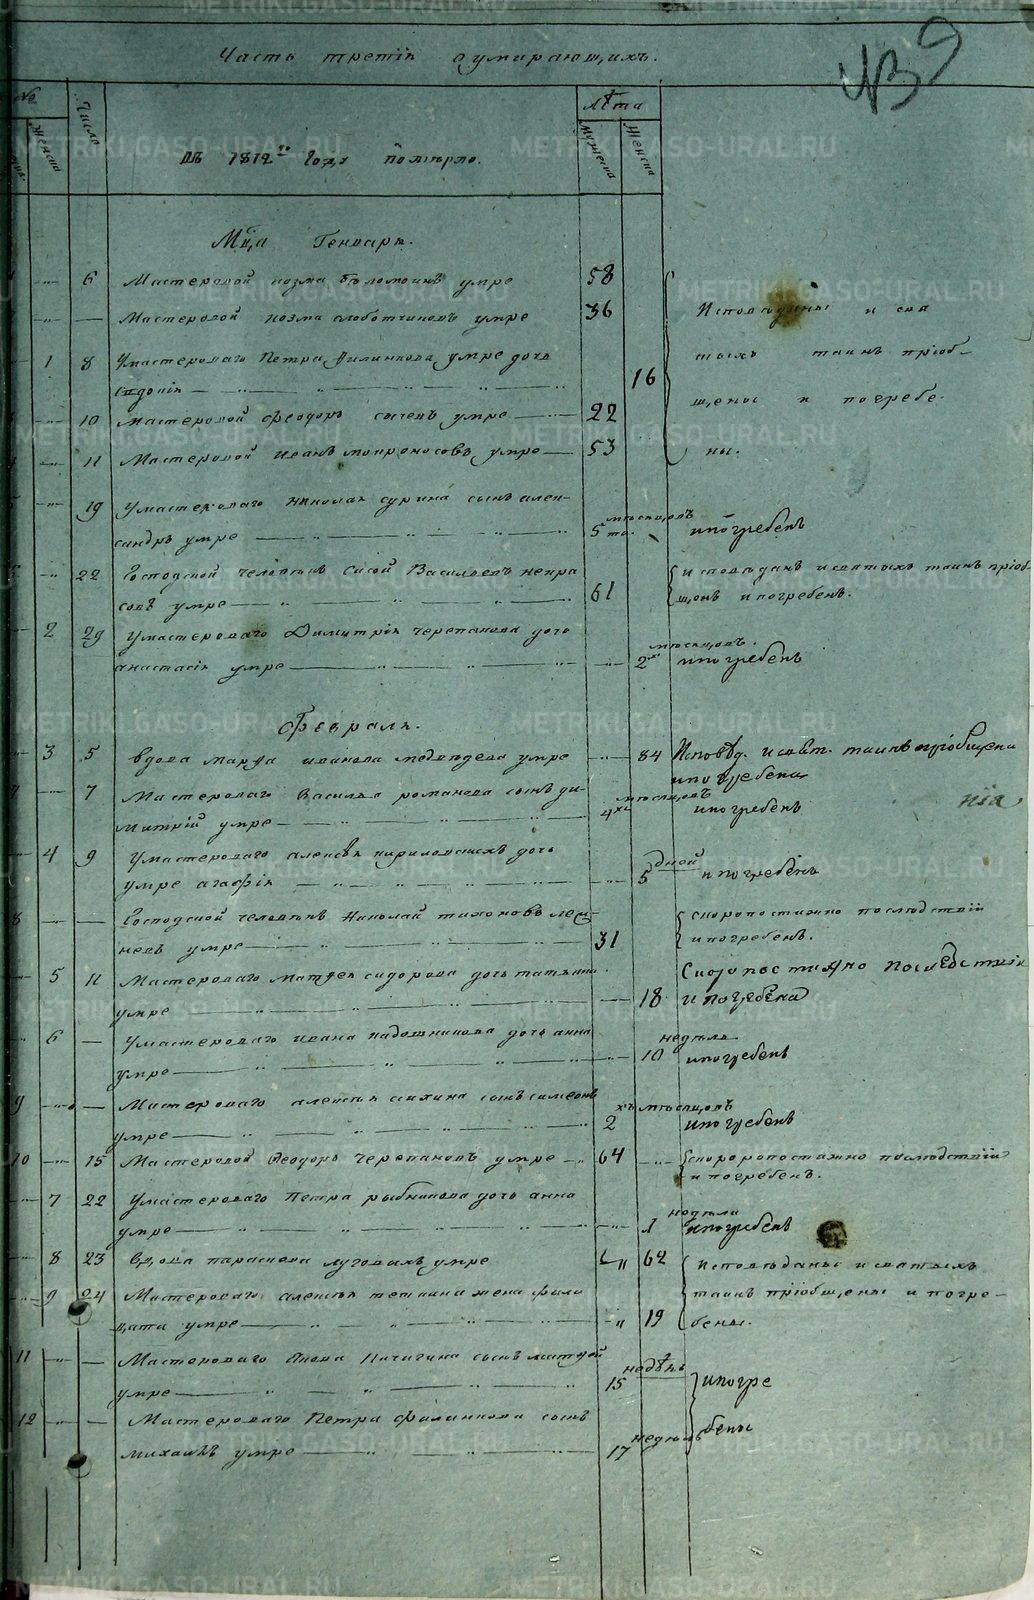 439
Часть третія оумирающихъ.
№
Число
Лѣта
Женска
Мужеска
Женска
Въ 1812го Году померло.
Мца Генваря.
6 Мастеровой козма бѣломоинъ умре 58
— Мастеровой козма слоботчиковъ умре 36
Исповѣданы и свя
1 8 Умастероваго Петра Филинкова умре дочь
тыхъ таинъ пріоб-
16
щены и погребе-
10 Мастеровой феодоръ сычевъ умре 22
11 Мастеровой Иванъ мокроносовъ умре 53
ны.
19 Умастероваго николая сурина сынъ алек-
сандръ умре 5 ти. мѣсяцовъ ипогребенъ
22 Господской человѣкъ Сисой Васильевъ некра
исповѣданъ исвятыхъ таинъ пріоб
совъ умре 61
щонъ ипогребенъ.
2 29 Умастероваго Димитрія черепанова дочь
анастасія умре 2хъ мѣсяцовъ. ипогребенъ
Февраля.
3 5 вдова марѳа иванова медвѣдева умре 84 Исповѣд. исвят. таинъ пріобщена
ипогребена
7 7 Мастероваго Василья романова сынъ ди-
нія
митрій умре 4хъ мѣсяцовъ ипогребенъ
4 9 Умастероваго алексѣя кириловскихъ дочь
умре агафія 5 дней ипогребенъ
8 — Господской человѣкъ Николай тихоновъ
скоропостижно послѣдствіи
умре 31
ипогребенъ.
5 11 Мастероваго матѳея сидорова дочь татьяна
Скоропостижно послѣдствія
умре 18 ипогребена
6 — Умастероваго ивана кадошникова дочь анна
умре 10 недѣль ипогребенъ
9 — Мастероваго алексѣя сынъ симеонъ
умре 2 хъ мѣсяцовъ ипогребенъ
10 15 Мастеровой Ѳеодоръ Черепановъ умре 64 скоропостижно послѣдствіи
ипогребенъ.
7 22 Умастероваго Петра рыбникова дочь анна
умре 1 недѣли ипогребенъ
8 23 вдова параскева луговыхъ умре 62 Исповѣданы исвятыхъ
9 24 Мастероваго алексѣя теткина жена фили
таинъ пріобщены и погре-
цата умре 19
бены.
11 — Мастероваго Якова Пичигина сынъ матѳей
умре 15 недѣль ипогре
12 — Мастероваго Петра филинкова сынъ
михаилъ умре 17 недѣль бены
METRIKI.GASO-URAL.RU